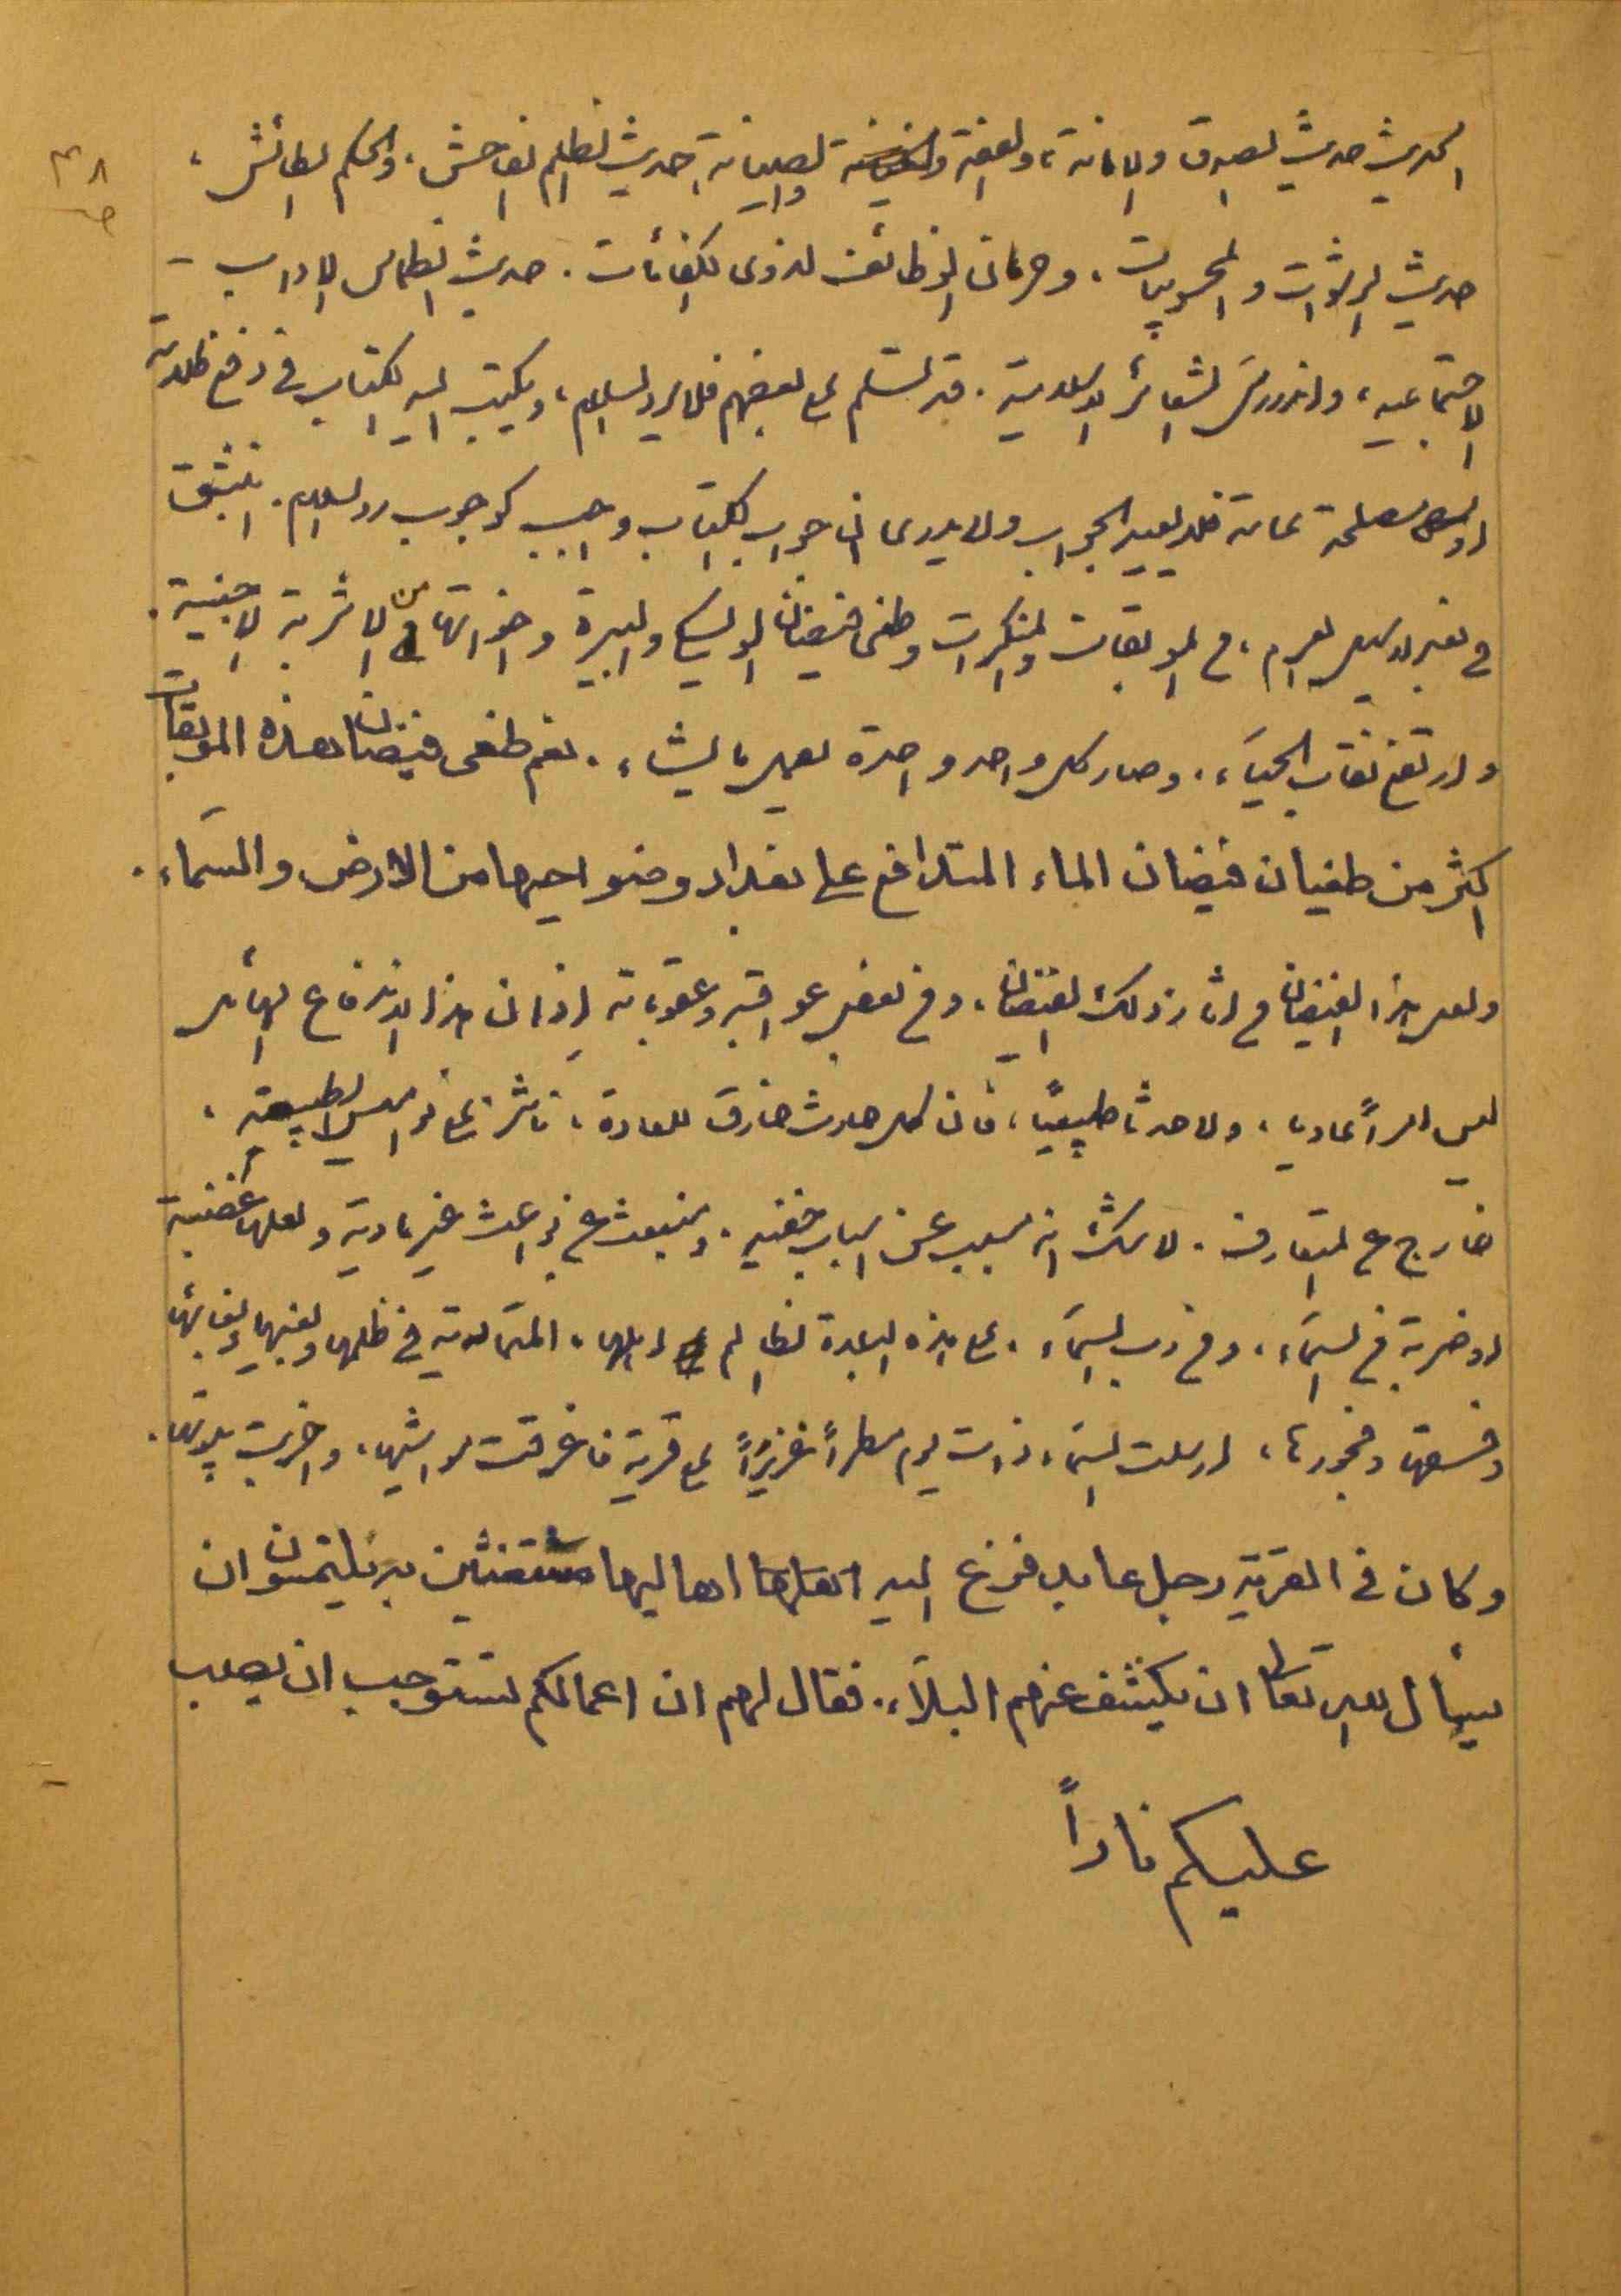 ٣٨
الحديث حديث الصدق والامانة، والعفة والصيانة، حديث الظلم الفاحش، والحكم الطائش،
حديث الرشوات والمحسوبيات، وحرمان الوظائف لذوى الكفائات. حديث انطماس الاداب -
الاجتماعيه، واندراس الشعائر الاسلامية. قد تسلم على بعضهم فلا يرد السلام، ويكتب اليه الكتاب في دفع ظلامة
او مصلحة عامة فلا يعيد الجواب ولا يدرى ان جواب الكتاب واجب كوجوب رد السلام. انبثق
في نفير العرام، من الموبقات والمنكرات وطغى فيضان الويسكي والبيرة واخواتها من الاشربة الاجنبية.
وارتفع نقاب الحيآء. وصار كل واحد واحدة تعمل ما يشاء. نعم طغى فيضان هذه الموبقات
اكثر من طغيان فيضان الماء المتدافع على بغداد وضواحيها من الارض والسمآء.
ولعل هذا الفيضان من اثار ذلك الفيضان، ومن بعض عواقبه وعقوباته إذ ان هذا الاندفاع الهائل
ليس امراً عاديا، ولا حدثا طبيعيًا، فان كل حادث خارق للعادة، ناشز على نواميس الطبيعة،
خارج عن المتعارف. لا شك انه مسبب عن اسباب خفيه. ومنبعث عن بواعث غير مادية ولعلها غضبة
او ضربة من السمآء، ومن رب السمآء. على هذه البلدة الظالم اهلها. المتمادية في ظلمها وبغيها وبغائها
وفسقها وفجورها، ارسلت السمآء ذات يوم مطراً غزيراً على قرية فاغرقت مواشيها، واخربت بيوتها.
وكان في القرية رجل عابد ففزع اليه اهاليها مستغيثين به يلتمسون ان
يسأل الله تعالى ان يكشف عنهم البلآء. فقال لهم ان اعمالكم تستوجب ان يصب
عليكم ناراً